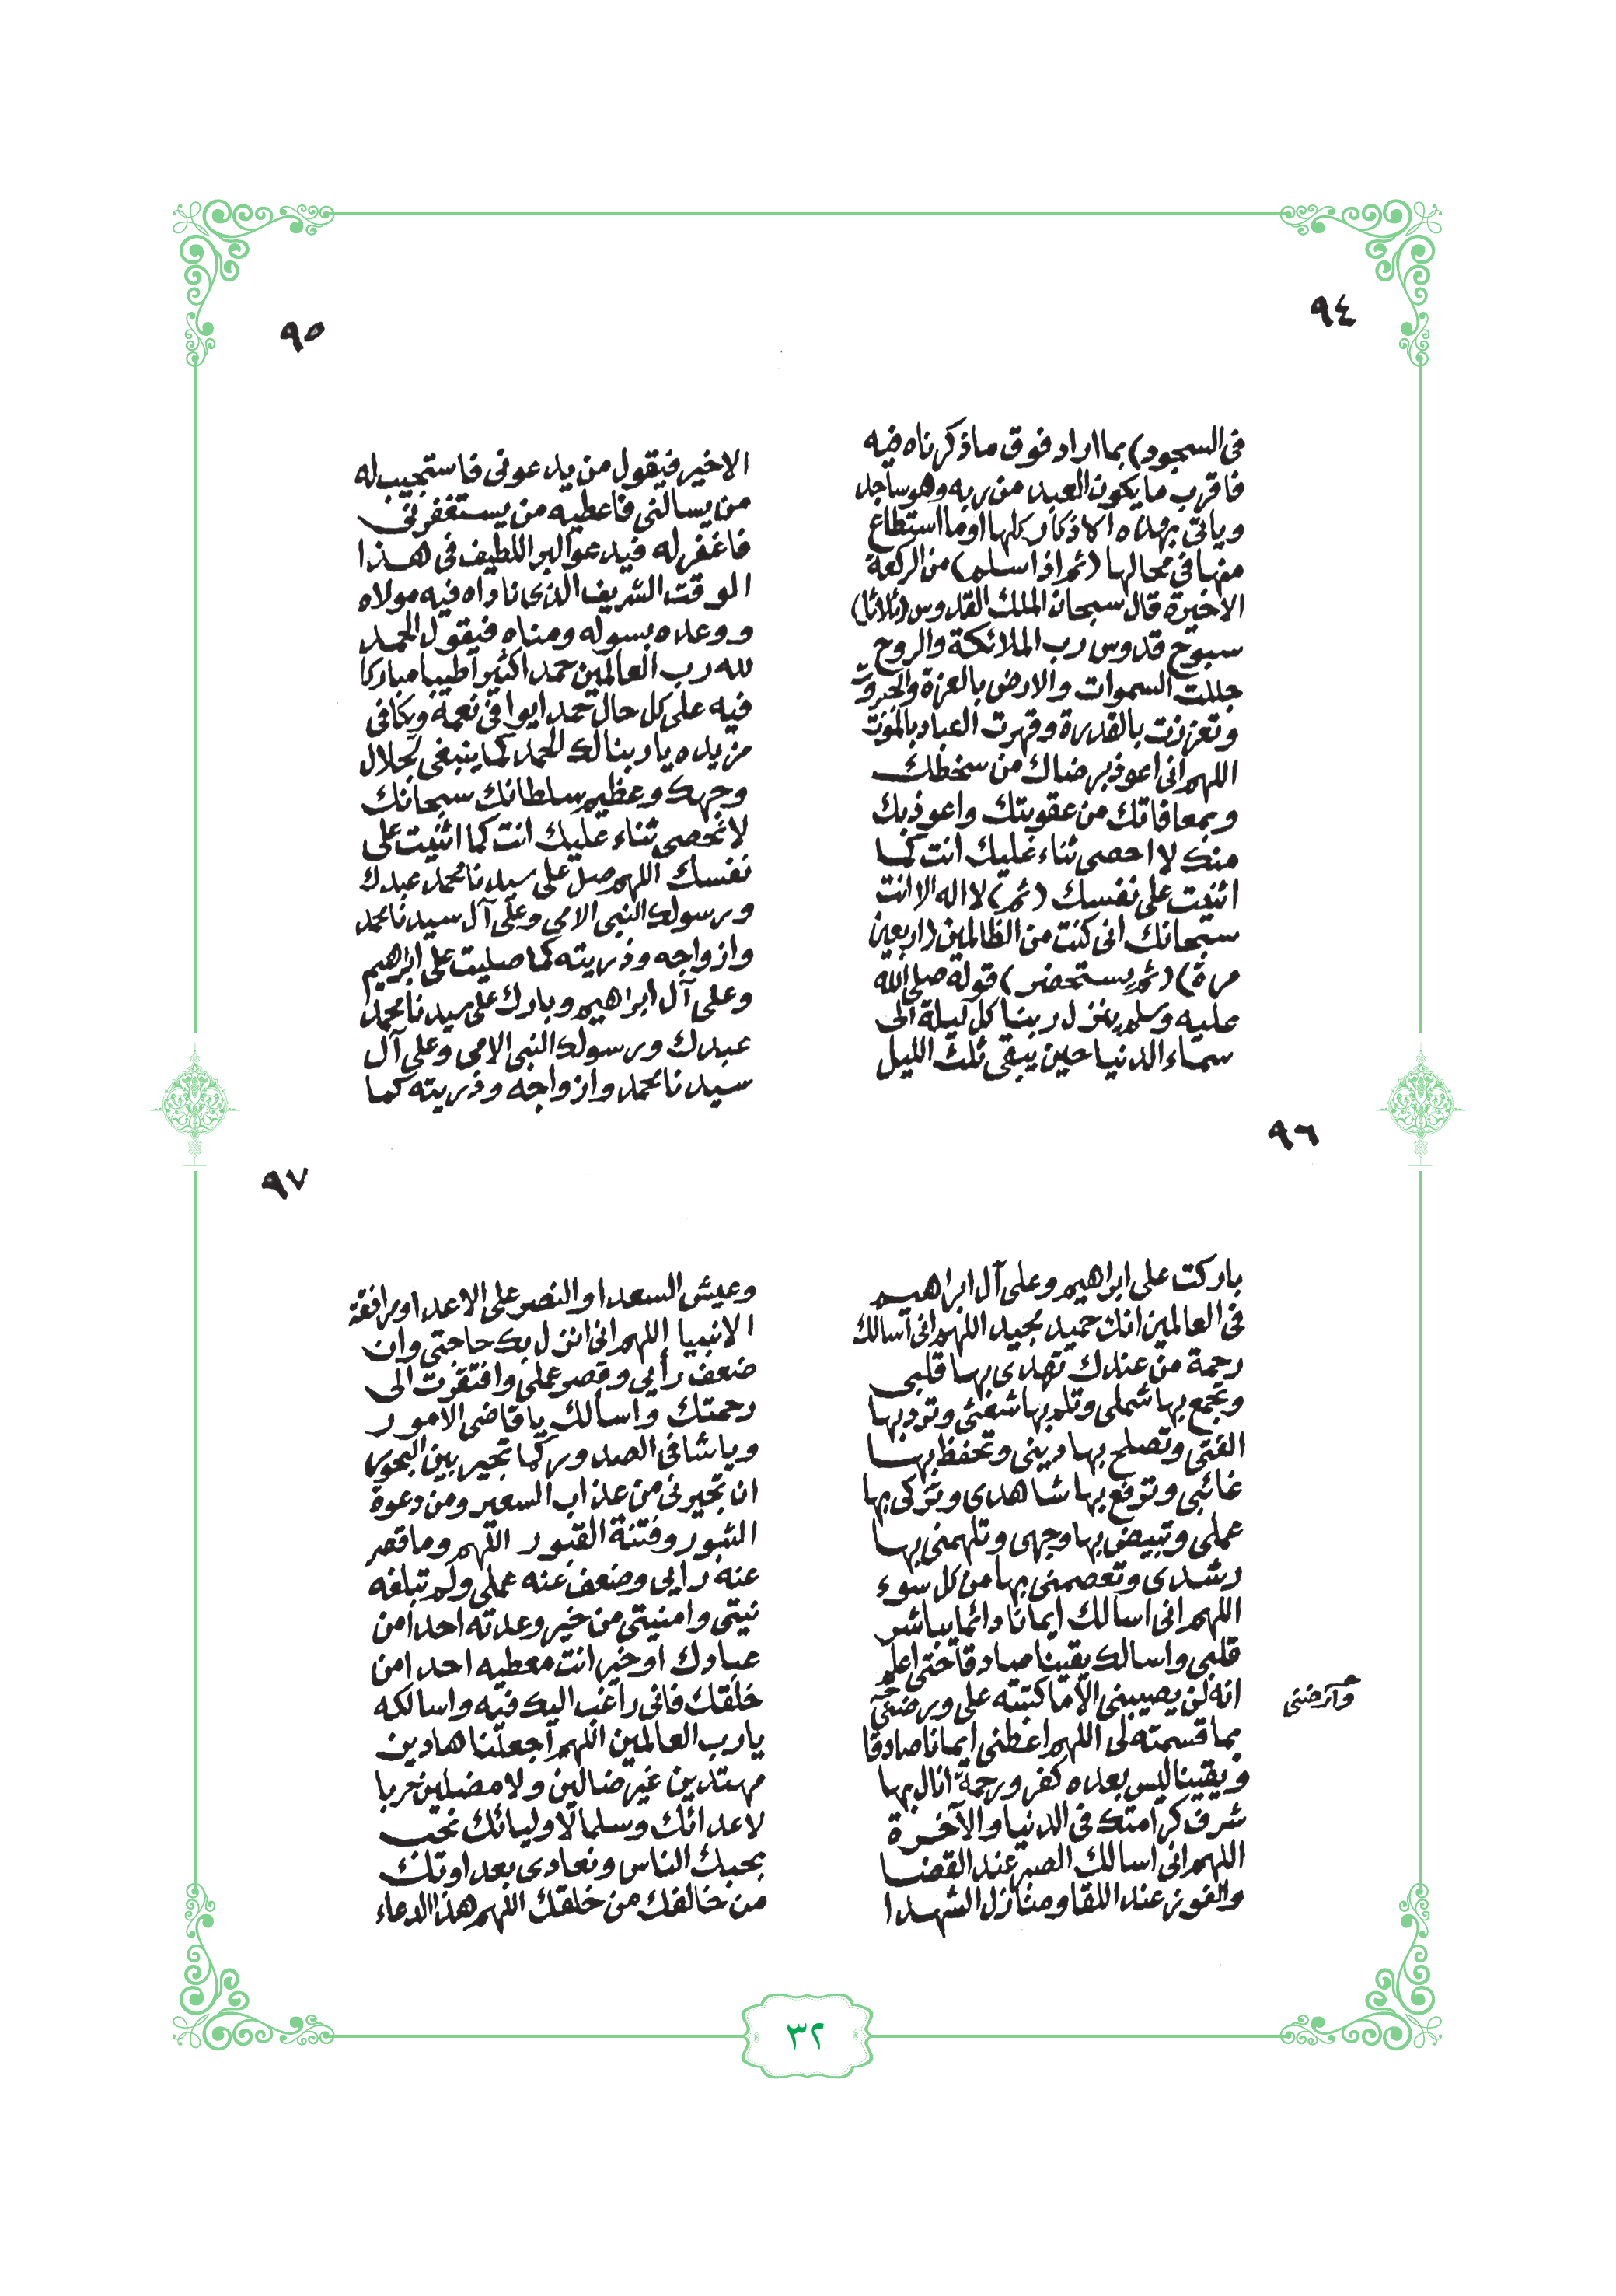 ٩٤
في السجود) بما اراد فوق ما ذكرناه فيه
فاقرب ما يكون العبد من ربه وهو ساجد
وياتي بهذه الاذكار كلها او ما استطاع
منها في محالها (ثم اذا سلم) من الركعة
الاخيرة قال سبحان الملك القدوس (ثلاثا)
سبوح قدوس رب الملائكة والروح
جللت السموات والارض بالعزة والجبروت
وتعززت بالقدرة وقهرت العباد بالموت
اللهم اني اعوذ برضاك من سخطك
وبمعافاتك من عقوبتك واعوذ بك
منك لا احصي ثناء عليك انت كما
اثنيت على نفسك (ثم) لا اله الا انت
سبحانك اني كنت من الظالمين (اربعين
مرة) (ثم يستحضر) قوله صلى الله
عليه وسلم ينزل ربنا كل ليلة الى
سماء الدنيا حين يبقى ثلث الليل
٩٥
الاخير فيقول من يدعوني فاستجيب له
من يسالني فاعطيه من يستغفرني
فاغفر له فيدعو البر اللطيف في هذا
الوقت الشريف الذي ناداه فيه مولاه
ووعده بسوله ومناه فيقول الحمد
لله رب العالمين حمدا كثيرا طيبا مباركا
فيه على كل حال حمدا يوافي نعمه ويكافي
مزيده يا ربنا لك الحمد كما ينبغي لجلال
وجهك وعظيم سلطانك سبحانك
لا نحصي ثناء عليك انت كما اثنيت على
نفسك اللهم صل على سيدنا محمد عبدك
ورسولك النبي الامي وعلى آل سيدنا محمد
وازواجه وذريته كما صليت على ابراهيم
وعلى آل ابراهيم وبارك على سيدنا محمد
عبدك ورسولك النبي الامي وعلى آل
سيدنا محمد وازواجه وذريته كما
٩٦
باركت على ابراهيم وعلى آل ابراهيم
في العالمين انك حميد مجيد اللهم اني اسالك
رحمة من عندك تهدي بها قلبي
وتجمع بها شملي وتلم بها شعثي وترد بها
الفتي وتصلح بها ديني وتحفظ بها
غائبي وترفع بها شاهدي وتزكي بها
عملي وتبيض بها وجهي وتلهمني بها
رشدي وتعصمني بها من كل سوء
اللهم اني اسالك ايمانا دائما يباشر
قلبي واسالك يقينا صادقا حتى اعلم
انه لن يصيبني الا ما كتبته علي ورضني
وارضني
بما قسمته لي اللهم اعطني ايمانا صادقا
ويقينا ليس بعده كفر ورحمة انال بها
شرف كرامتك في الدنيا والآخرة
اللهم اني اسالك الصبر عند القضا
والفوز عند اللقا ومنازل الشهدا
٩٧
وعيش السعدا والنصر على الاعدا ومرافقة
الانبيا اللهم اني انزل بك حاجتي وان
ضعف رأيي وقصر عملي وافتقرت الى
رحمتك واسألك يا قاضي الامور
ويا شافي الصدور كما تجير بين البحور
ان تجيرني من عذاب السعير ومن دعوة
الثبور وفتنة القبور اللهم وما قصر
عنه رايي وضعف عنه عملي ولم تبلغه
نيتي وامنيتي من خير وعدته احدا من
عبادك او خير انت معطيه احدا من
خلقك فاني راغب اليك فيه واسالكه
يا رب العالمين اللهم اجعلنا هادين
مهتدين غير ضالين ولا مضلين حربا
لاعدائك وسلما لاوليائك نحب
بحبك الناس ونعادي بعداوتك
من خالفك من خلقك اللهم هذا الدعاء
٣٢